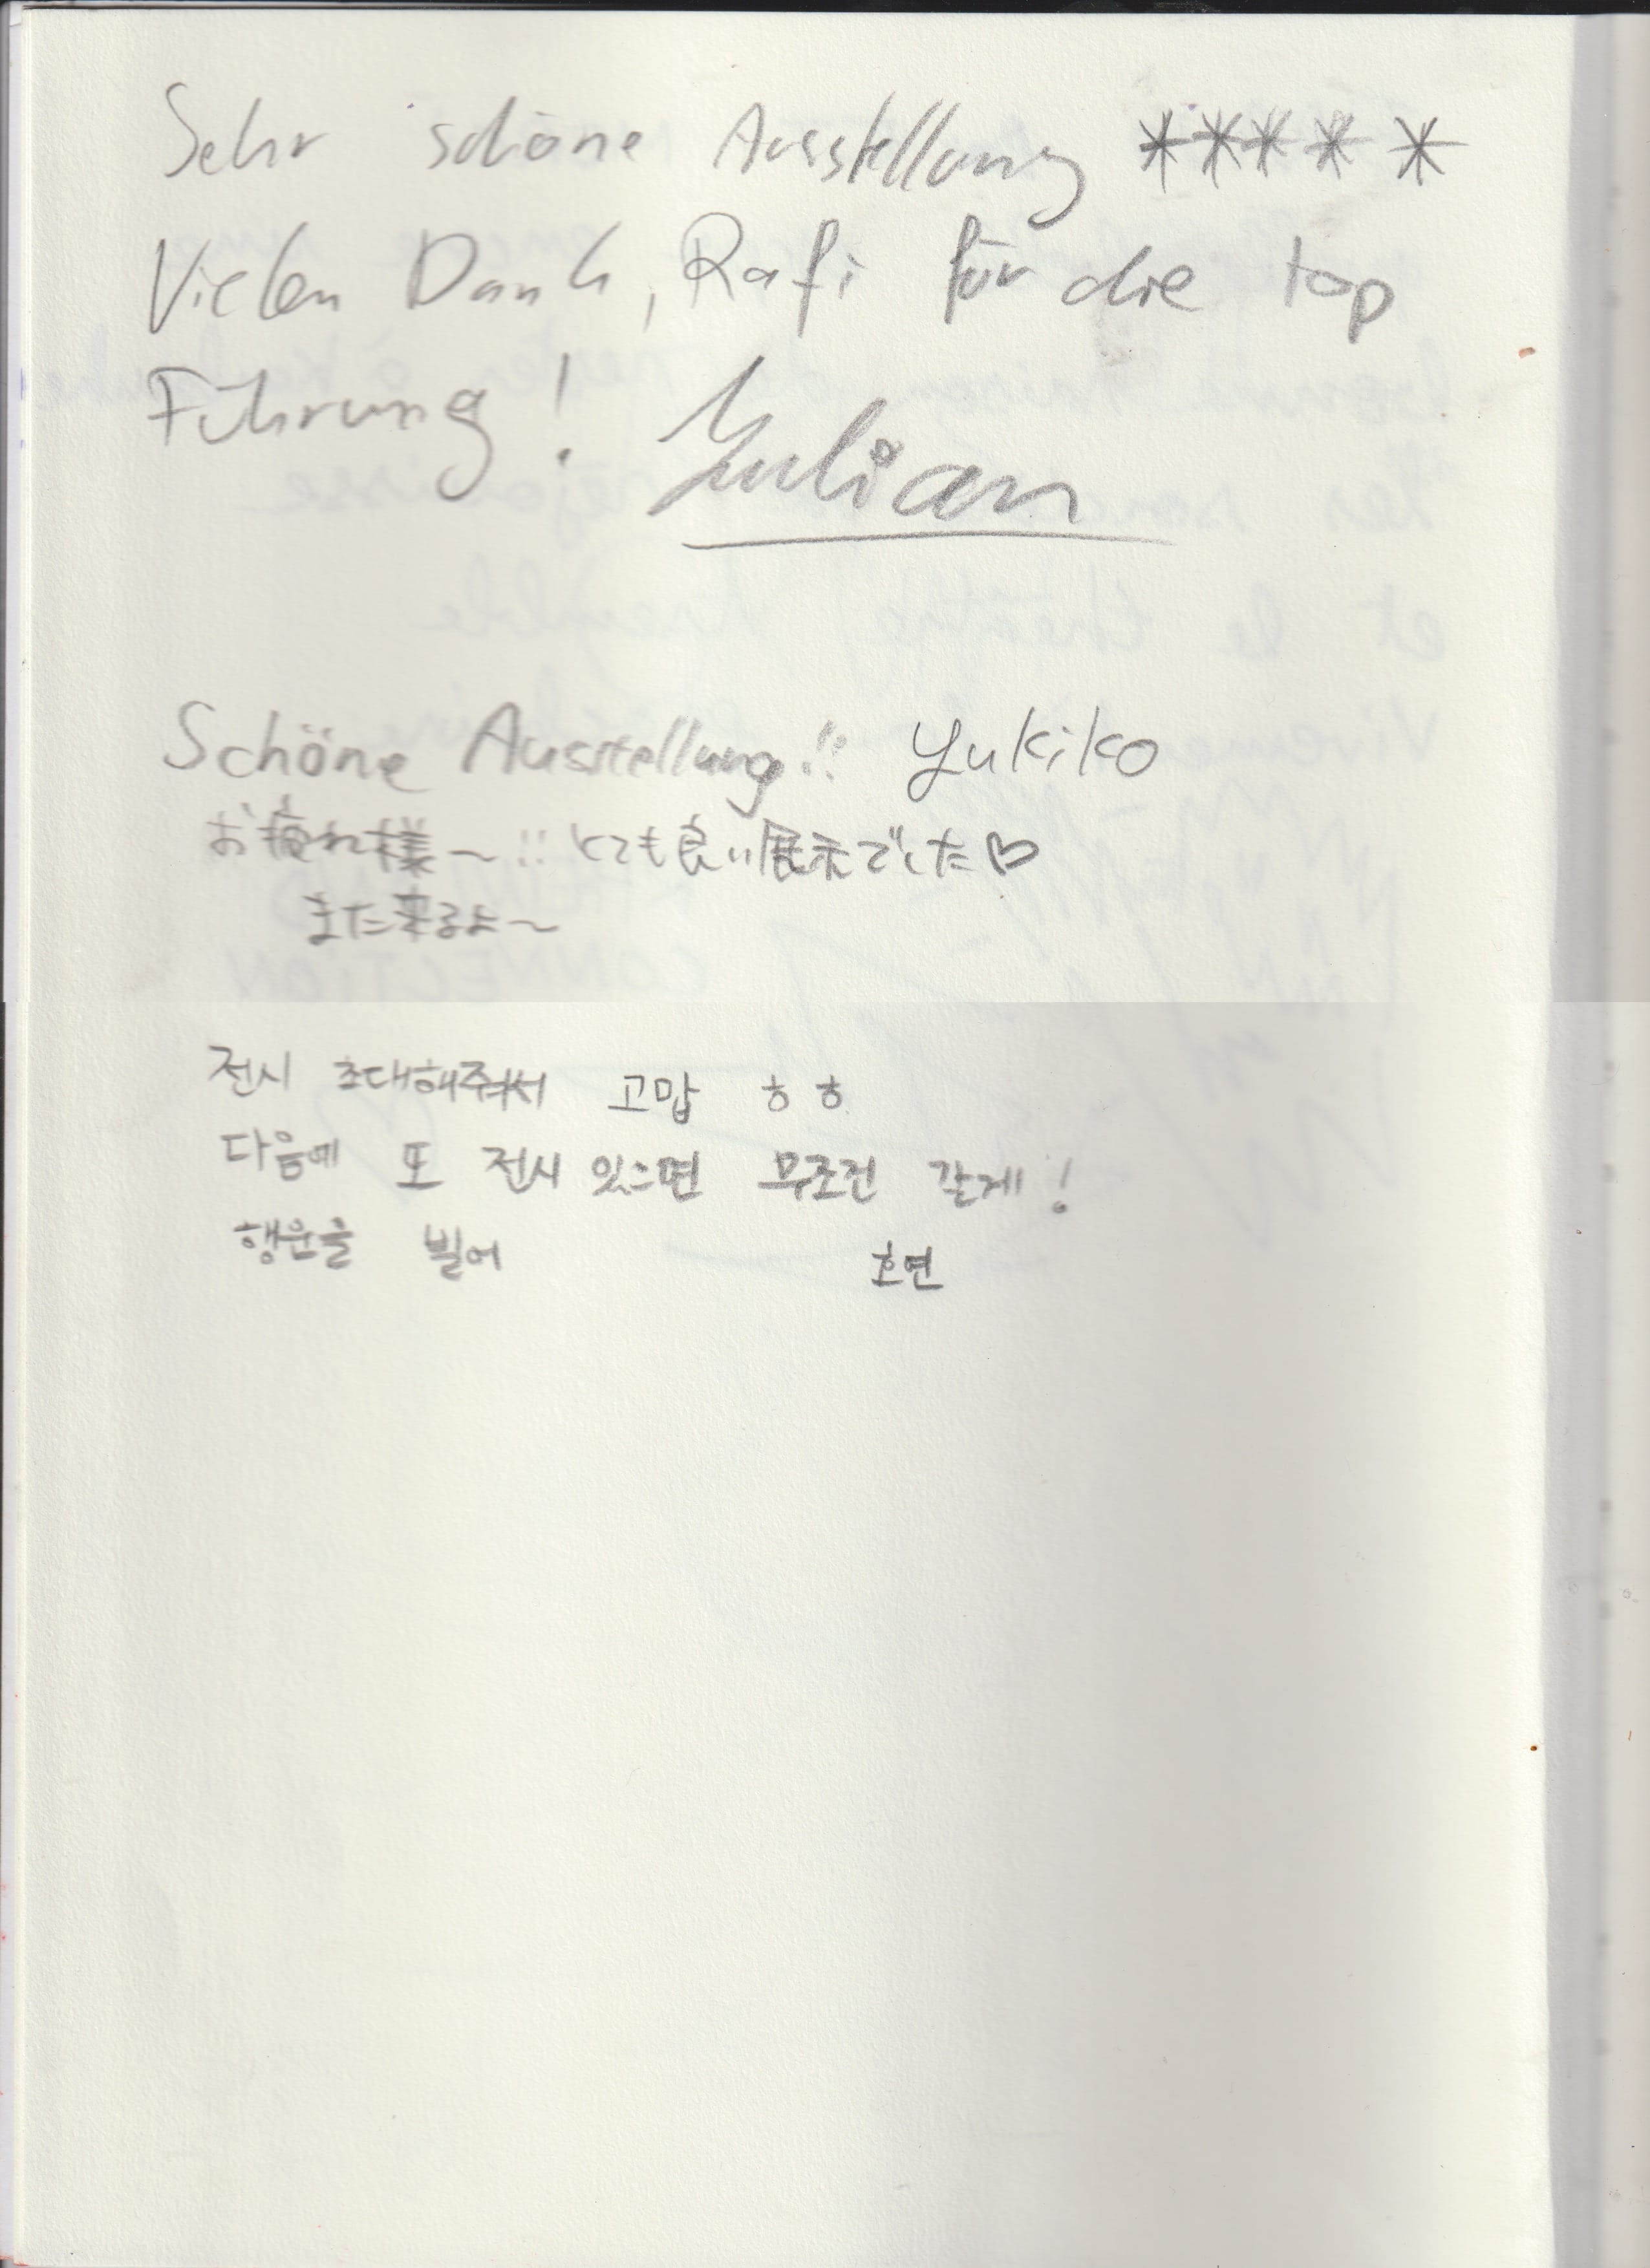 Sehr schöne Ausstellung *****
Vielen Dank, Rafi für die top
Führung!
Julian
Schöne Ausstellung!! Yukiko
お疲れ様〜!! とても良い展示でした♡
また来るよ〜
전시 초대해줘서 고맙 ㅎㅎ
다음에 또 전시 있으면 무조건 갈게!
행운을 빌어 호연